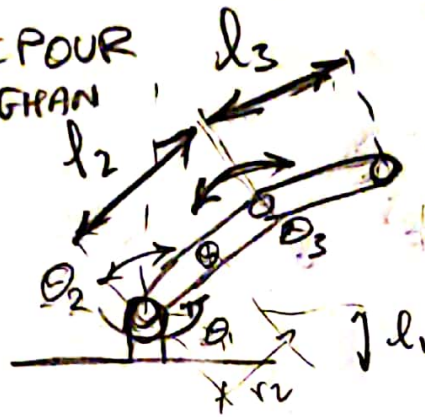 POUR
GHAN
l3
l2
θ2
θ3
θ1
l1
r2